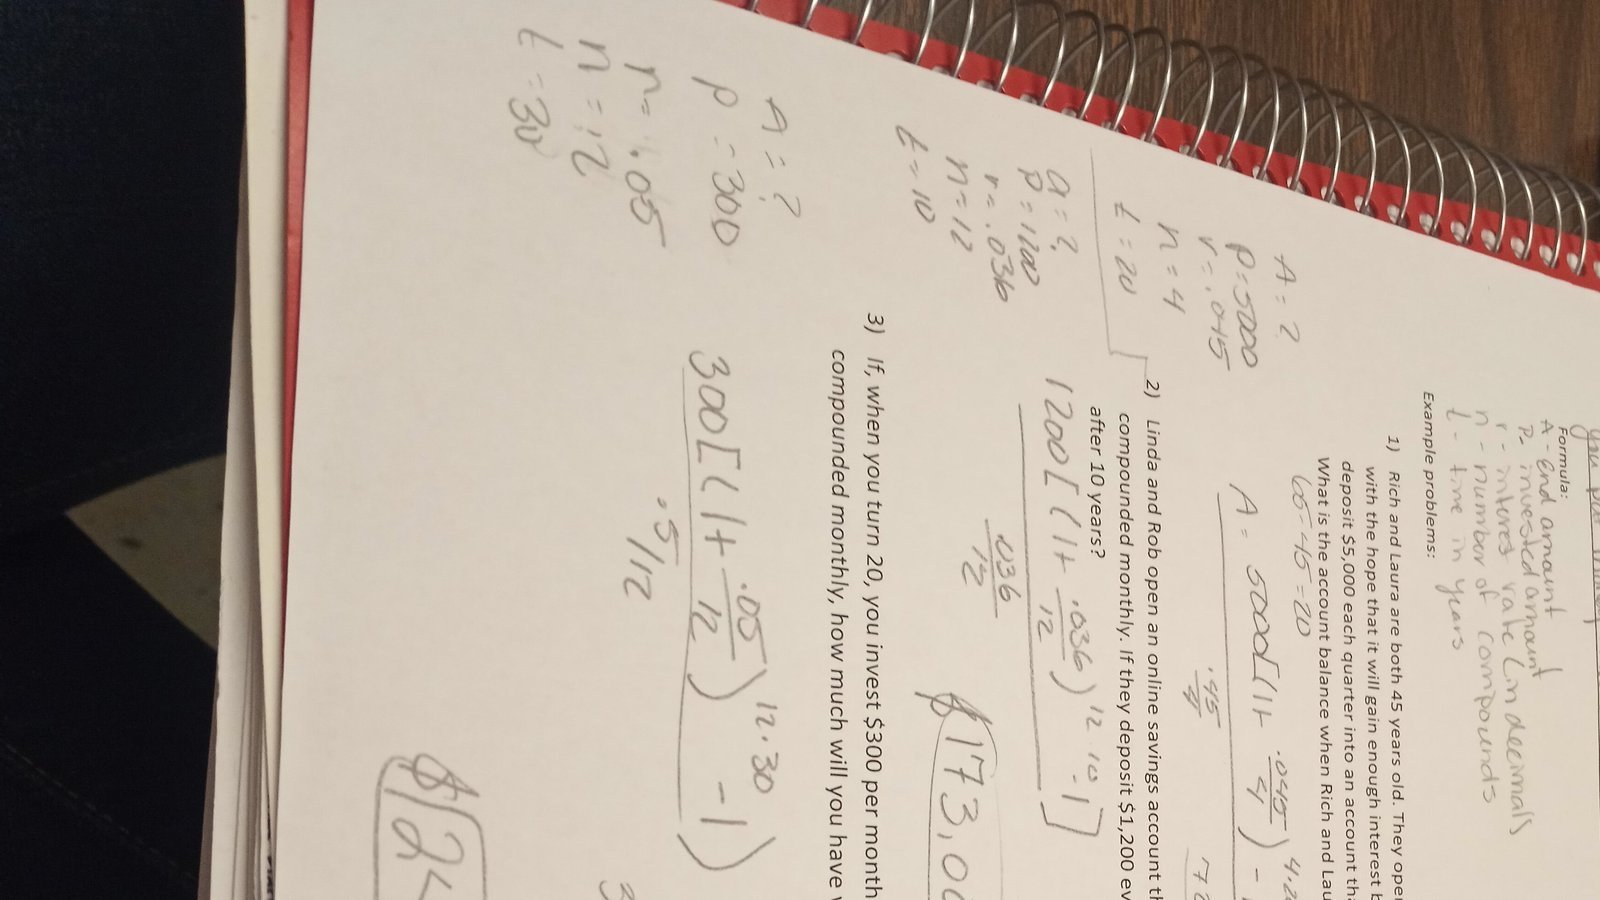 Formula:
A - End amount
P - invested amount
r - interes rate (in decimals
n - number of compounds
t - time in years
Example problems:
1) Rich and Laura are both 45 years old. They open
with the hope that it will gain enough interest b
deposit $5,000 each quarter into an account tha
What is the account balance when Rich and Lau
65-45=20
A = ?
P=5000
r=.045
n=4
t=20
A = 5000[(1+ .045/4)
.45/4
2) Linda and Rob open an online savings account th
compounded monthly. If they deposit $1,200 ev
after 10 years?
a=?
P=1200
r=.036
n=12
t=10
1200[(1+ .036/12)^12·10 -1]
.036/12
$173,0
3) If, when you turn 20, you invest $300 per month
compounded monthly, how much will you have
A=?
P=300
r=.05
n=12
t=30
300[(1+ .05/12)^12·30 -1)
.5/12
$12